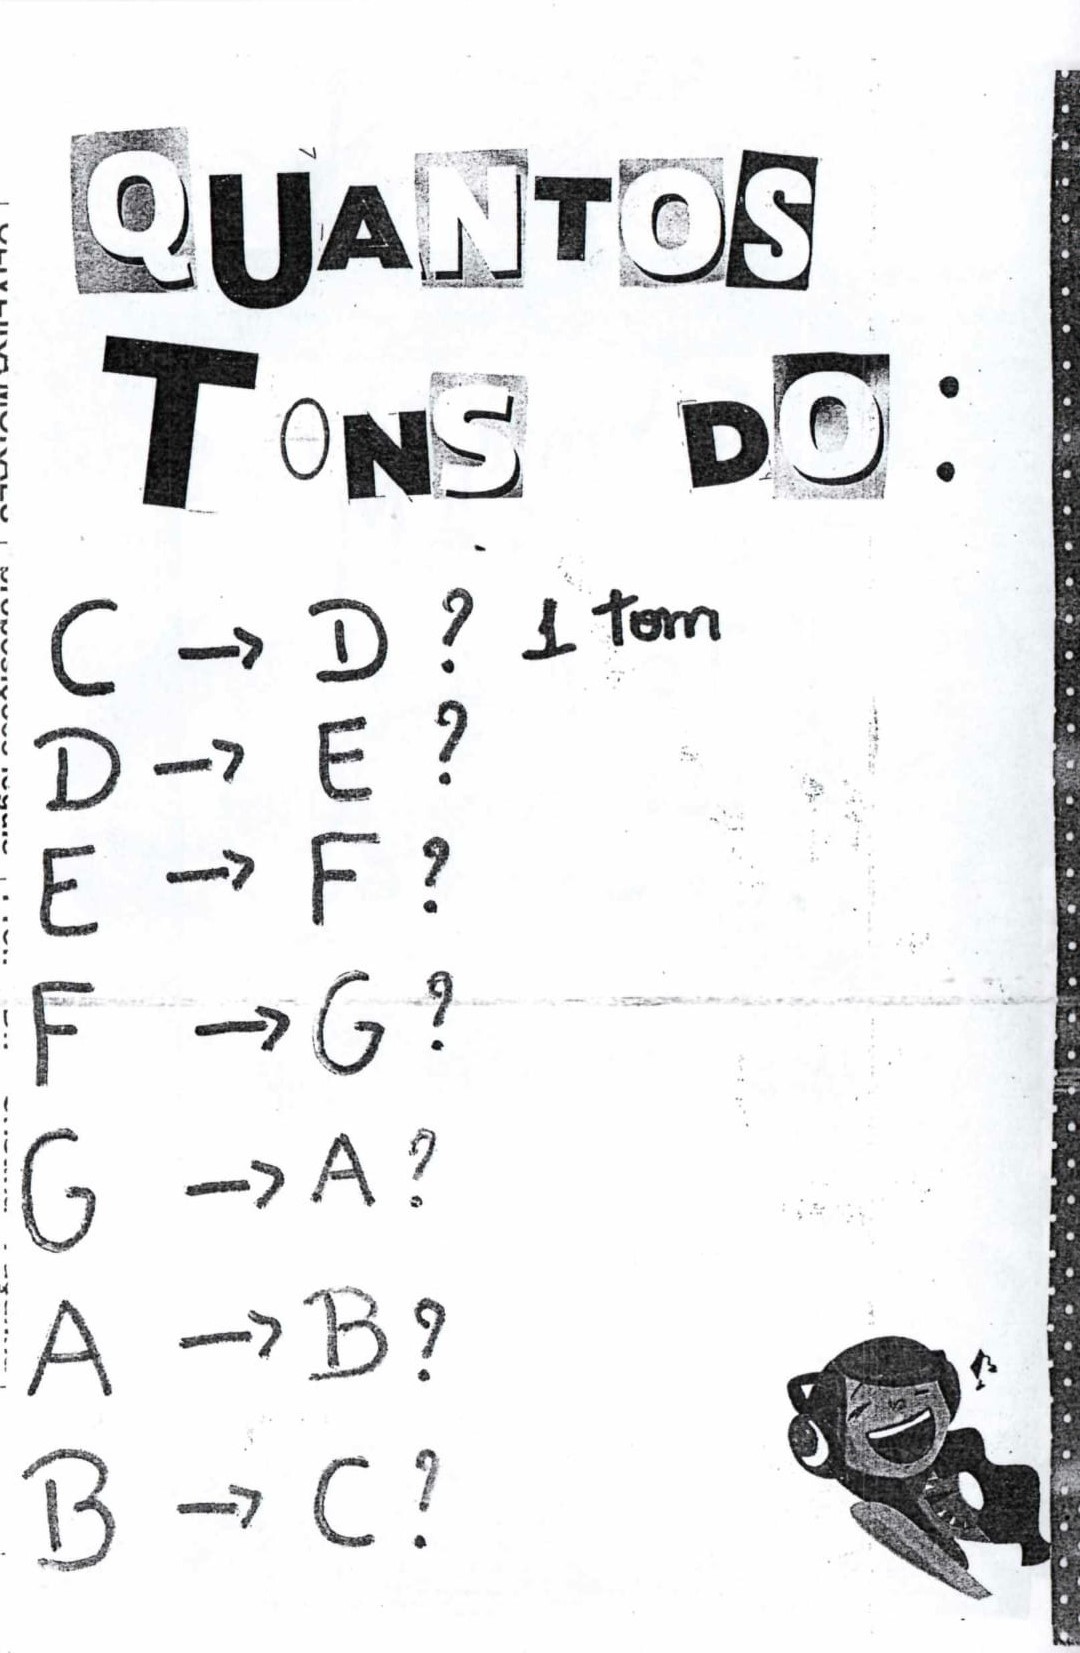 QUANTOS
TONS DO:
C → D ? 1 tom
D → E ?
E → F ?
F → G ?
G → A ?
A → B ?
B → C ?